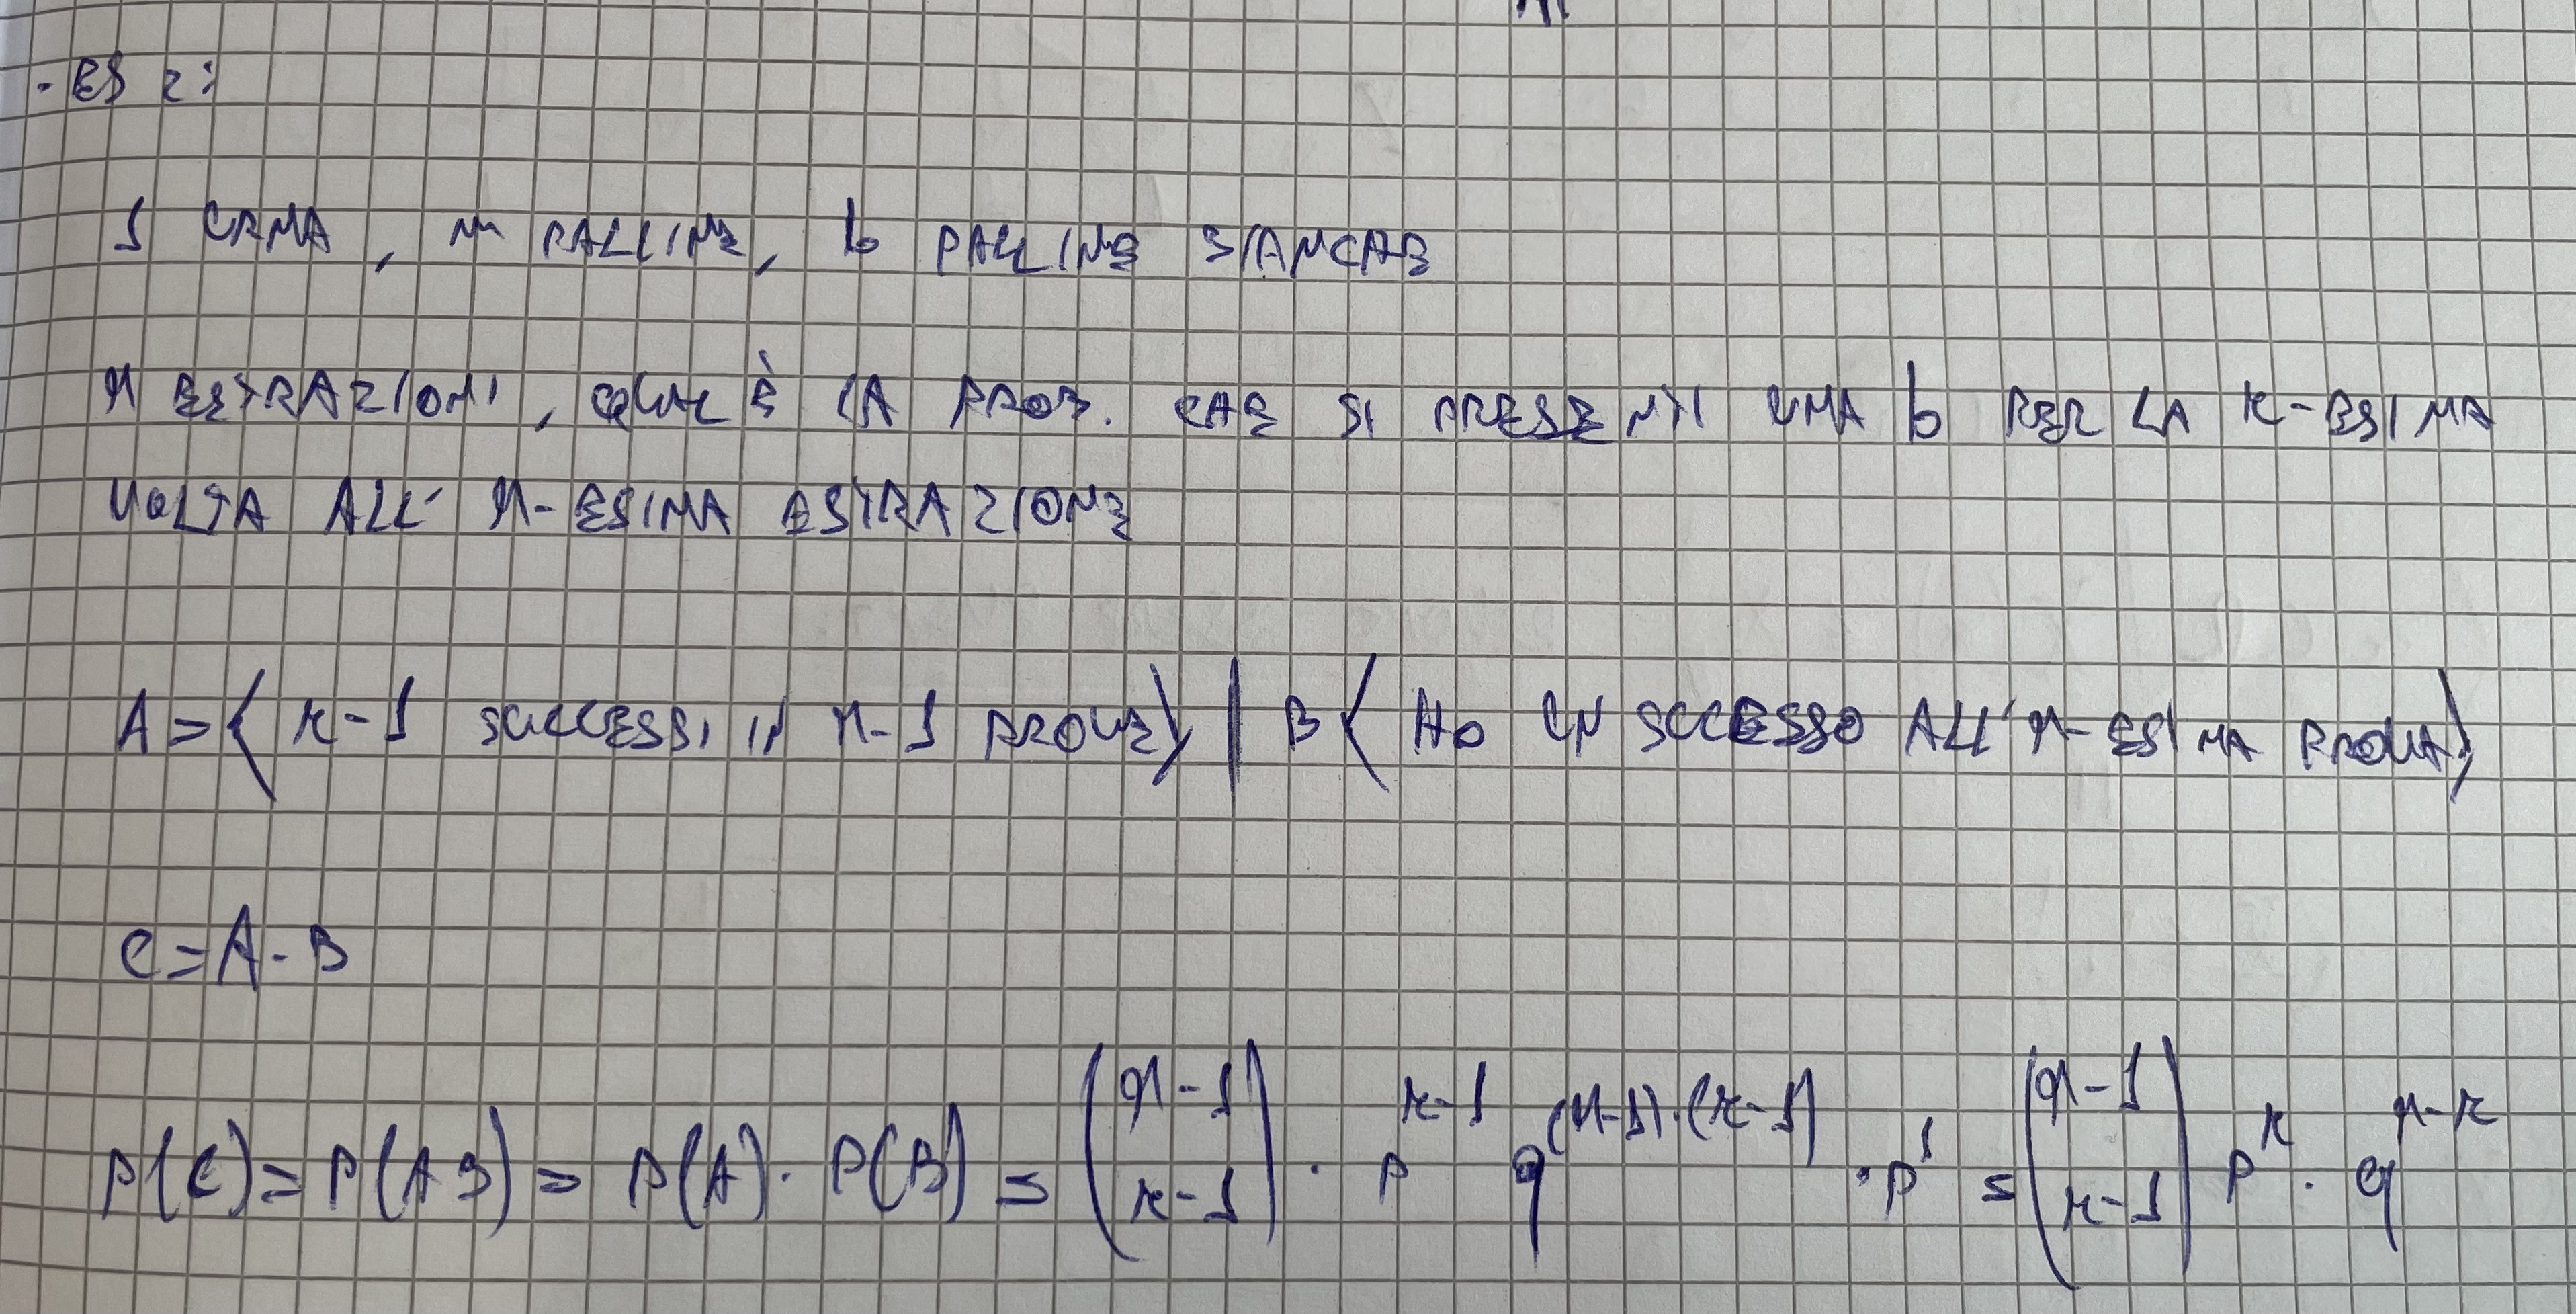 - ES 2:
1 URNA, m PALLINE, b PALLINE BIANCHE
n ESTRAZIONI, QUAL È LA PROB. CHE SI PRESENTI UNA b PER LA K-ESIMA
VOLTA ALL' n-ESIMA ESTRAZIONE
A = { K-1 SUCCESSI IN n-1 PROVE } | B { HO UN SUCCESSO ALL' n-ESIMA PROVA }
C = A · B
P(C) = P(AB) = P(A) · P(B) = (n-1 K-1) · p^K-1 q^(n-1)·(K-1) · p^1 = (n-1 K-1) p^K · q^n-K